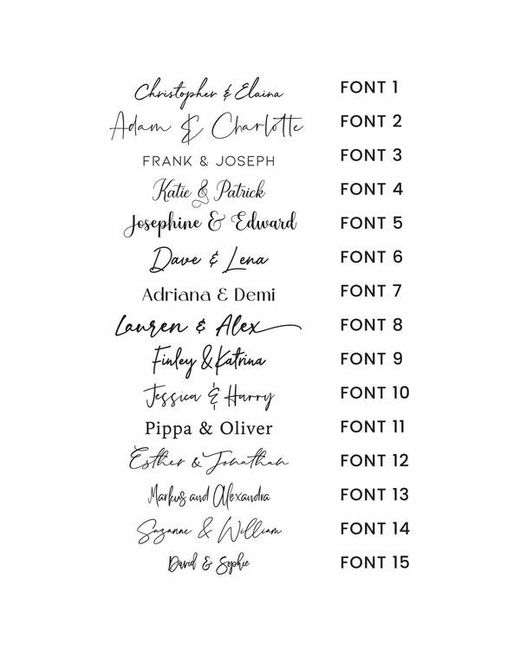 Christopher & Elaina FONT 1
Adam & Charlotte FONT 2
FRANK & JOSEPH FONT 3
Katie & Patrick FONT 4
Josephine & Edward FONT 5
Dave & Lena FONT 6
Adriana & Demi FONT 7
Lauren & Alex FONT 8
Finley & Katrina FONT 9
Jessica & Harry FONT 10
Pippa & Oliver FONT 11
Esther & Jonathan FONT 12
Markus and Alexandra FONT 13
Suzanne & William FONT 14
David & Sophie FONT 15